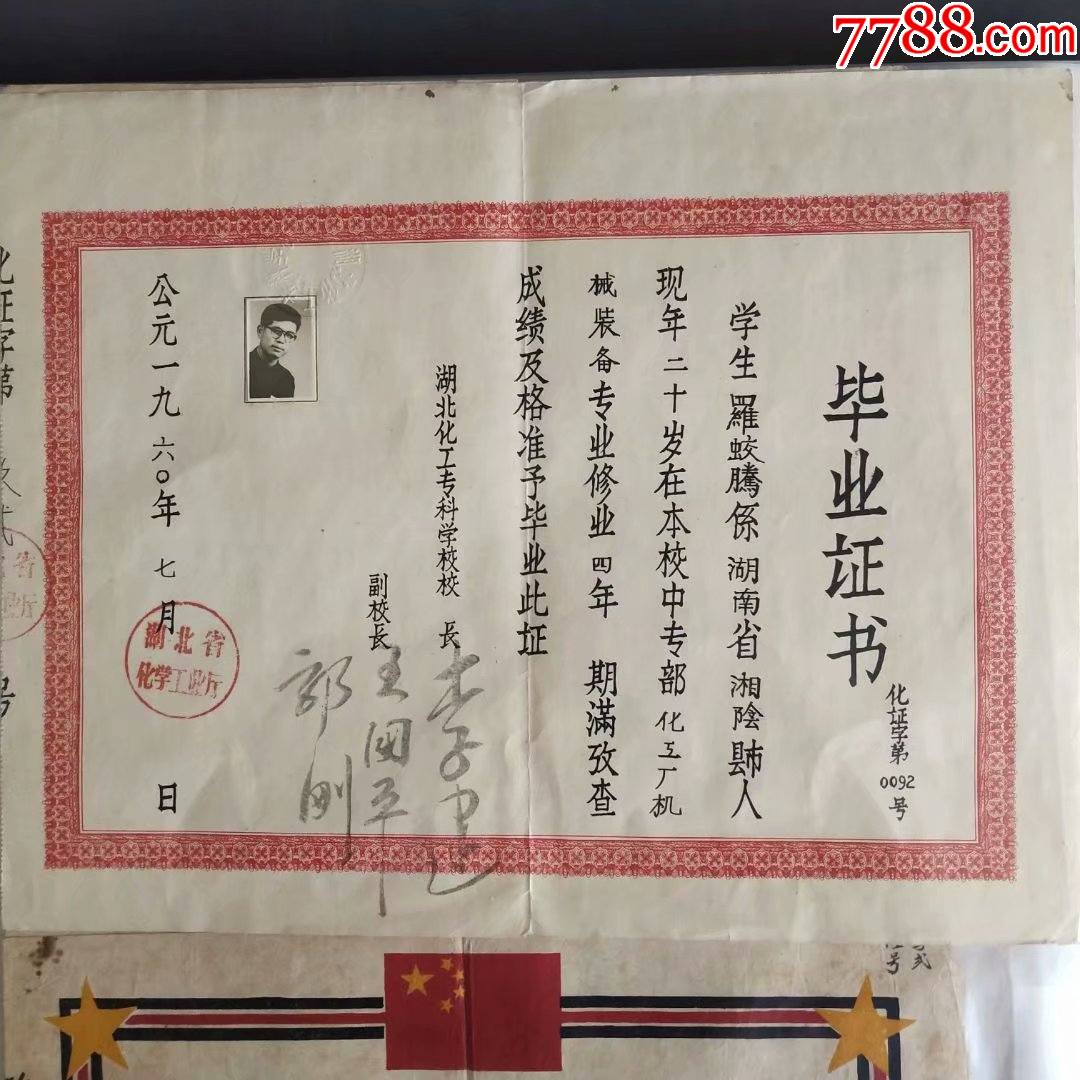 7788.com
毕业证书
化证字第0092号
学生羅蛟騰係湖南省湘陰縣人
现年二十岁在本校中专部化工厂机
械装备专业修业四年期滿攷查
成绩及格准予毕业此证
湖北化工专科学校校長
副校長
王国平
郭刚
公元一九六〇年七月日
湖北省
化学工业厅
化证字第
号